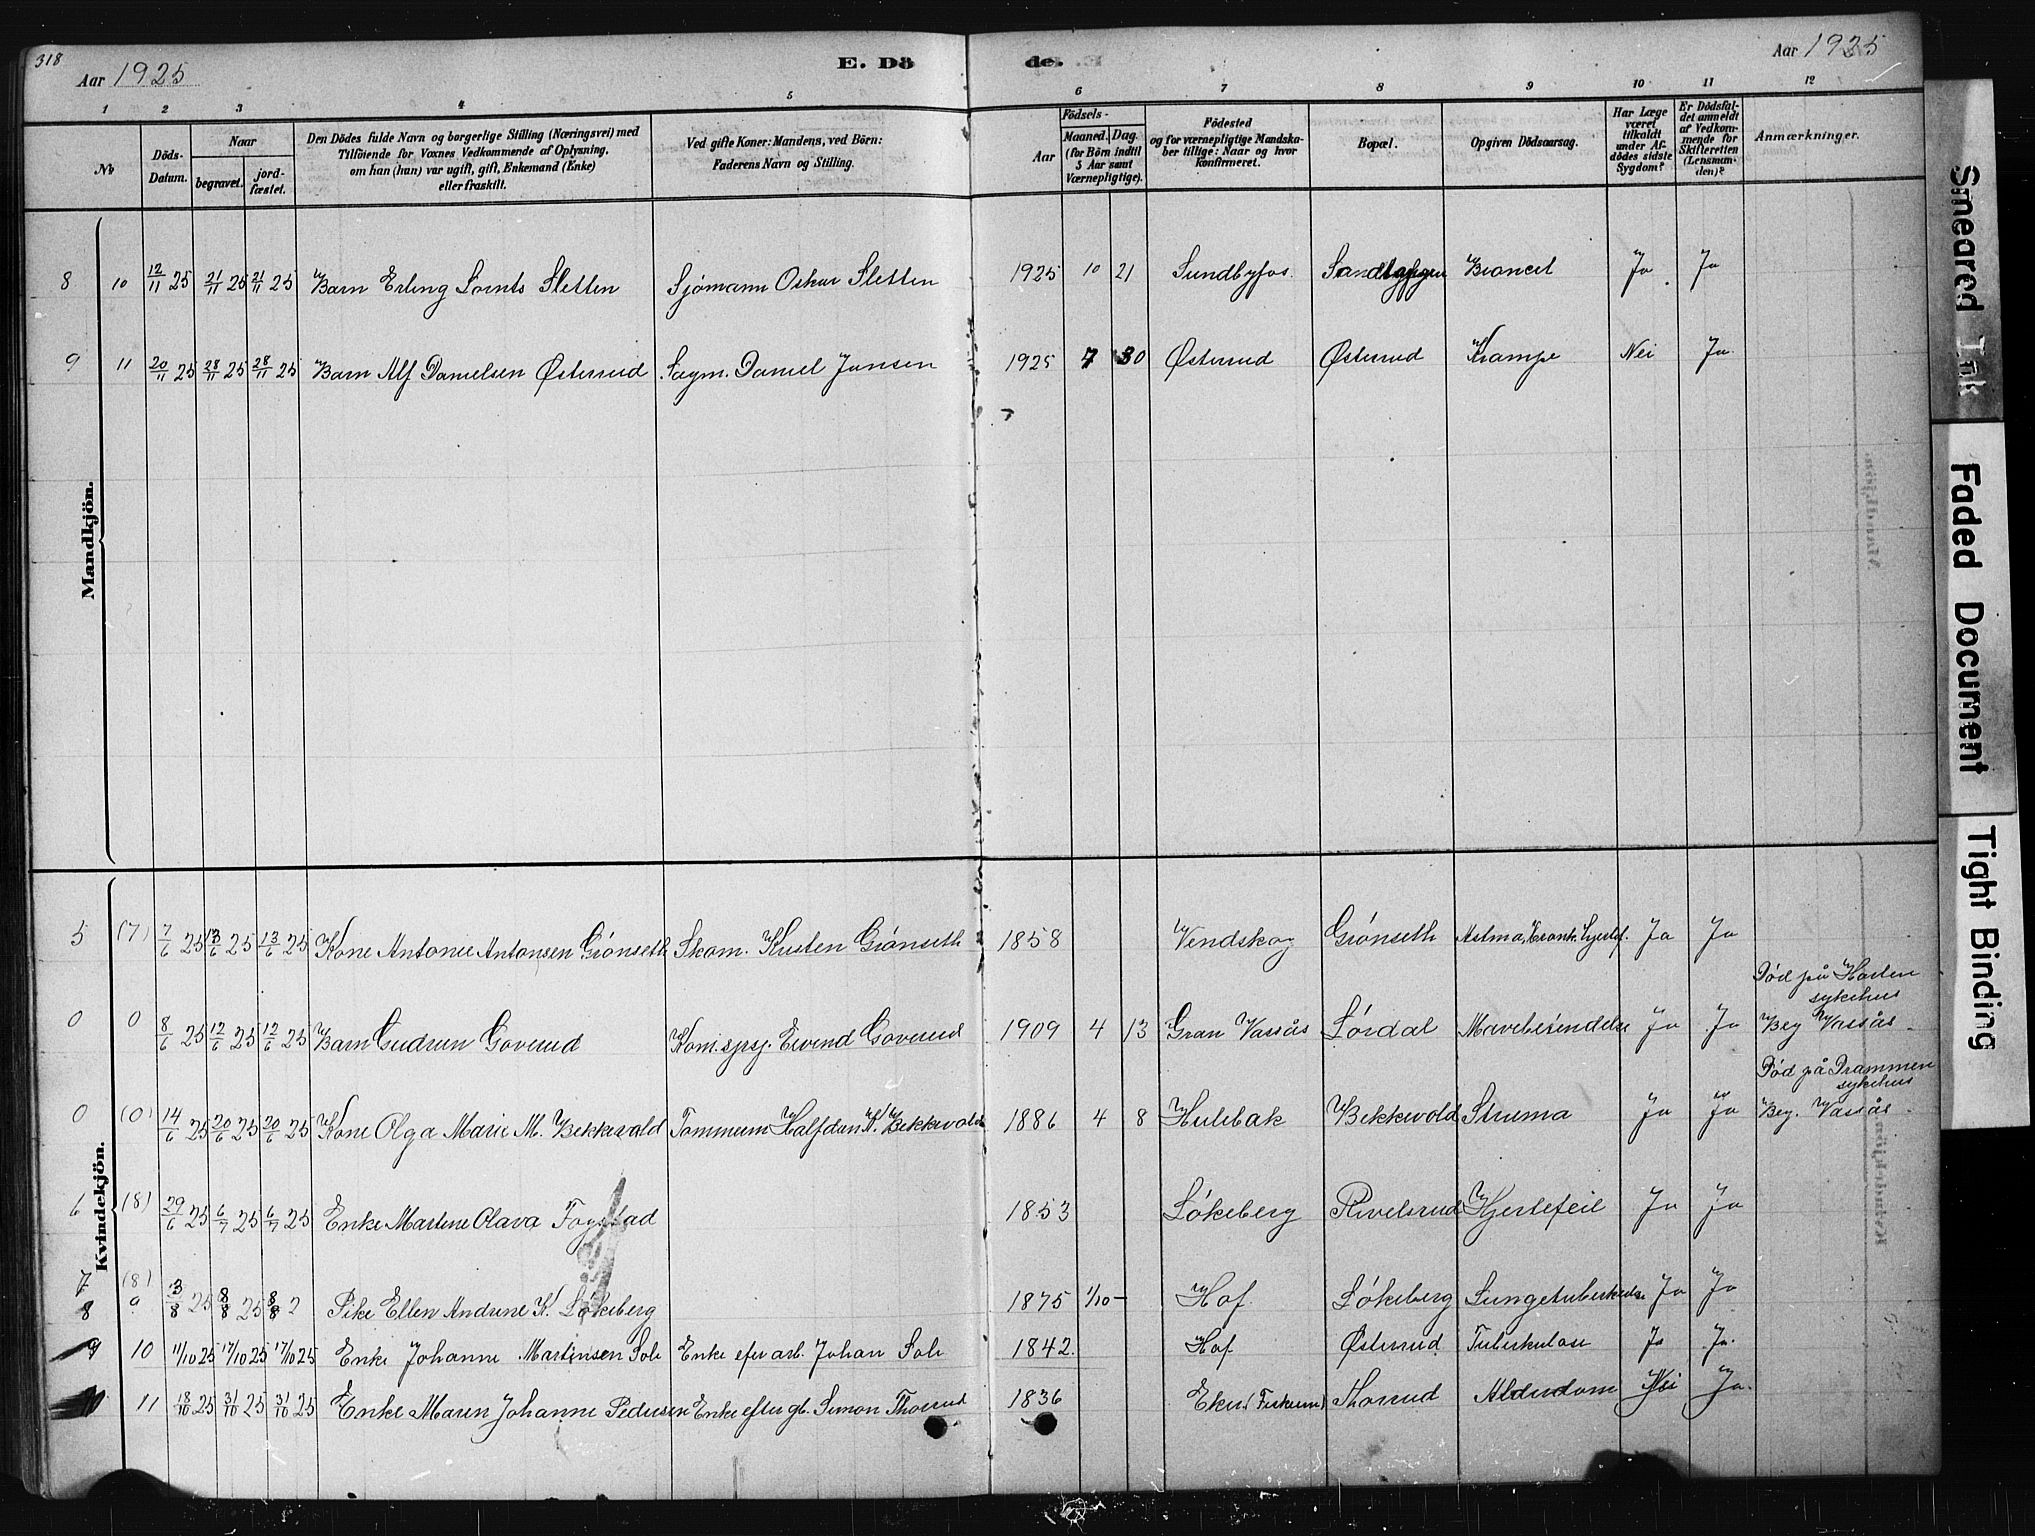 318
Aar 1925
E. Dö
de.
Aar 1925
1 2 3 4 5 6 7 8 9 10 11 12
No
Döds-Datum.
Naar
begravet.
jord-fæstet.
Den Dödes fulde Navn og borgerlige Stilling (Næringsvei) med
Tilföiende for Voxnes Vedkommende af Oplysning,
om han (hun) var ugift, gift, Enkemand (Enke)
eller fraskilt.
Ved gifte Koner: Mandens, ved Börn:
Faderens Navn og Stilling.
Födsels-
Aar
Maaned. Dag.
(for Börn indtil
5 Aar samt
Værnepligtige).
Födested
og for værnepligtige Mandska-
ber tillige: Naar og hvor
konfirmeret.
Bopæl.
Opgiven Dödsaarsag.
Har Læge
været
tilkaldt
under Af-
dödes sidste
Sygdom?
Er Dödsfal-
det anmeldt
af Vedkom-
mende for
Skifteretten
(Lensman-
den)?
Anmærkninger.
Mandkjön.
8 10 12/11 25 21/11 25 21/11 25 Barn Erling Lornts Sletten Sjømann Oskar Sletten 1925 10 21 Sundbyfos. Ja Ja
9 11 20/11 25 28/11 25 28/11 25 Barn Alf Danielsen Østerud Sagm. Daniel Jansen 1925 7 30 Østerud Østerud Krampe Nei Ja
Kvindekjön.
5 (7) 7/6 25 13/6 25 13/6 25 Kone Antonie Antonsen Grønseth Skom. Kristen Grønseth 1858 Vendskog Grønseth Astma, Kronk. hjertef. Ja Ja
Død på Horten
sykehus
0 0 8/6 25 12/6 25 12/6 25 Barn Gudrun Goverud Eivind Goverud 1909 4 13 Gran Vassås Lørdal Ja Ja Beg Vassås
Død på Drammen
sykehus
0 (0) 14/6 25 20/6 25 20/6 25 Kone Olga Marie M. Bekkevold Tømmerm Halfdan K. Bekkevold 1886 4 8 Hulebak Bekkevold Struma Ja Ja Beg. Vassås
6 (8) 29/6 25 6/7 25 6/7 25 Enke Martine Olava Fogstad 1853 Løkeberg Rivelsrud Hjertefeil Ja Ja
7 (8)
8 9 3/8 25 8/8 25 8/8 2 Pike Ellen Andrine K. Løkeberg 1875 1/10 - Hof Løkeberg Lungetuberkulose Ja Ja
9 10 11/10 25 17/10 25 17/10 25 Enke Johanne Martinsen Soli Enke efter arb. Johan Soli 1842 Hof Østerud Tuberkulose Ja Ja
10 11 18/10 25 31/10 25 31/10 25 Enke Maren Johanne Pedersen Enke efter g. Simon Thorrud 1836 Eker (Fiskum) Thorrud Alderdom Nei Ja
Smeared Ink
Faded Document
Tight Binding